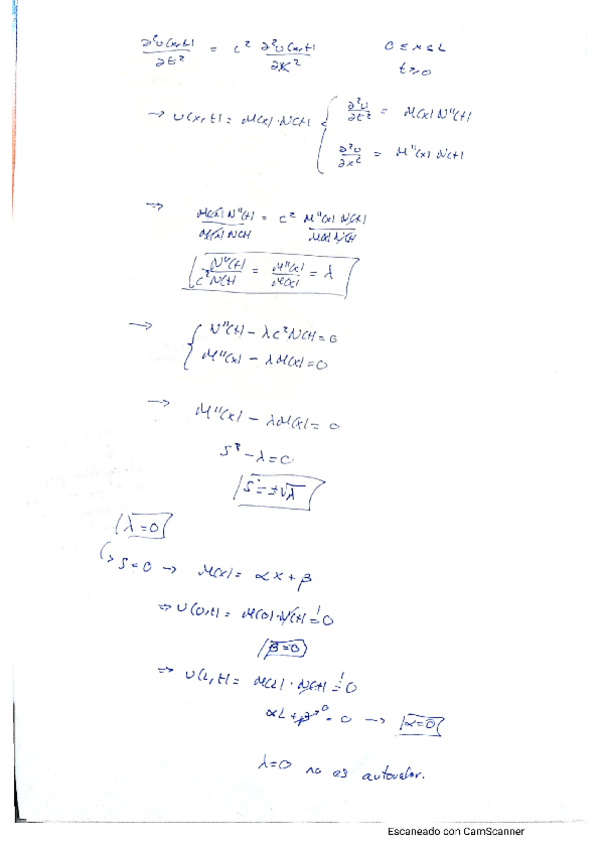 ∂²U(x,t)/∂t² = c² ∂²U(x,t)/∂x²   0 ≤ x ≤ L
t ≥ 0
→ U(x,t) = M(x)·N(t) { ∂²U/∂t² = M(x) N''(t)
∂²U/∂x² = M''(x) N(t)
→ M(x) N''(t)/M(x) N(t) = c² M''(x) N(t)/M(x) N(t)
N''(t)/c² N(t) = M''(x)/M(x) = λ
→ { N''(t) - λ c² N(t) = 0
M''(x) - λ M(x) = 0
→ M''(x) - λ M(x) = 0
s² - λ = 0
s = ±√λ
λ = 0
↳ s = 0 → M(x) = αx + β
⇒ U(0,t) = M(0)·N(t) =! 0
β = 0
⇒ U(L,t) = M(L)·N(t) =! 0
αL + β→0 = 0 → α = 0
λ = 0 no es autovalor.
Escaneado con CamScanner